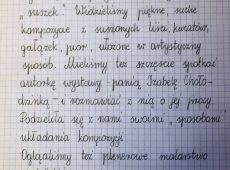 „suszek". Widzieliśmy piękne, suche
kompozycje z suszonych liści, kwiatów,
gałązek, piór, ułożone w artystyczny
sposób. Mieliśmy też szczęście spotkać
autorkę wystawy - panią Izabelę Choło-
dzińką - i rozmawiać z nią o jej pracy.
Podzieliła się z nami swoimi „sposobami"
układania kompozycji.
Oglądaliśmy też plenerowe malarstwo